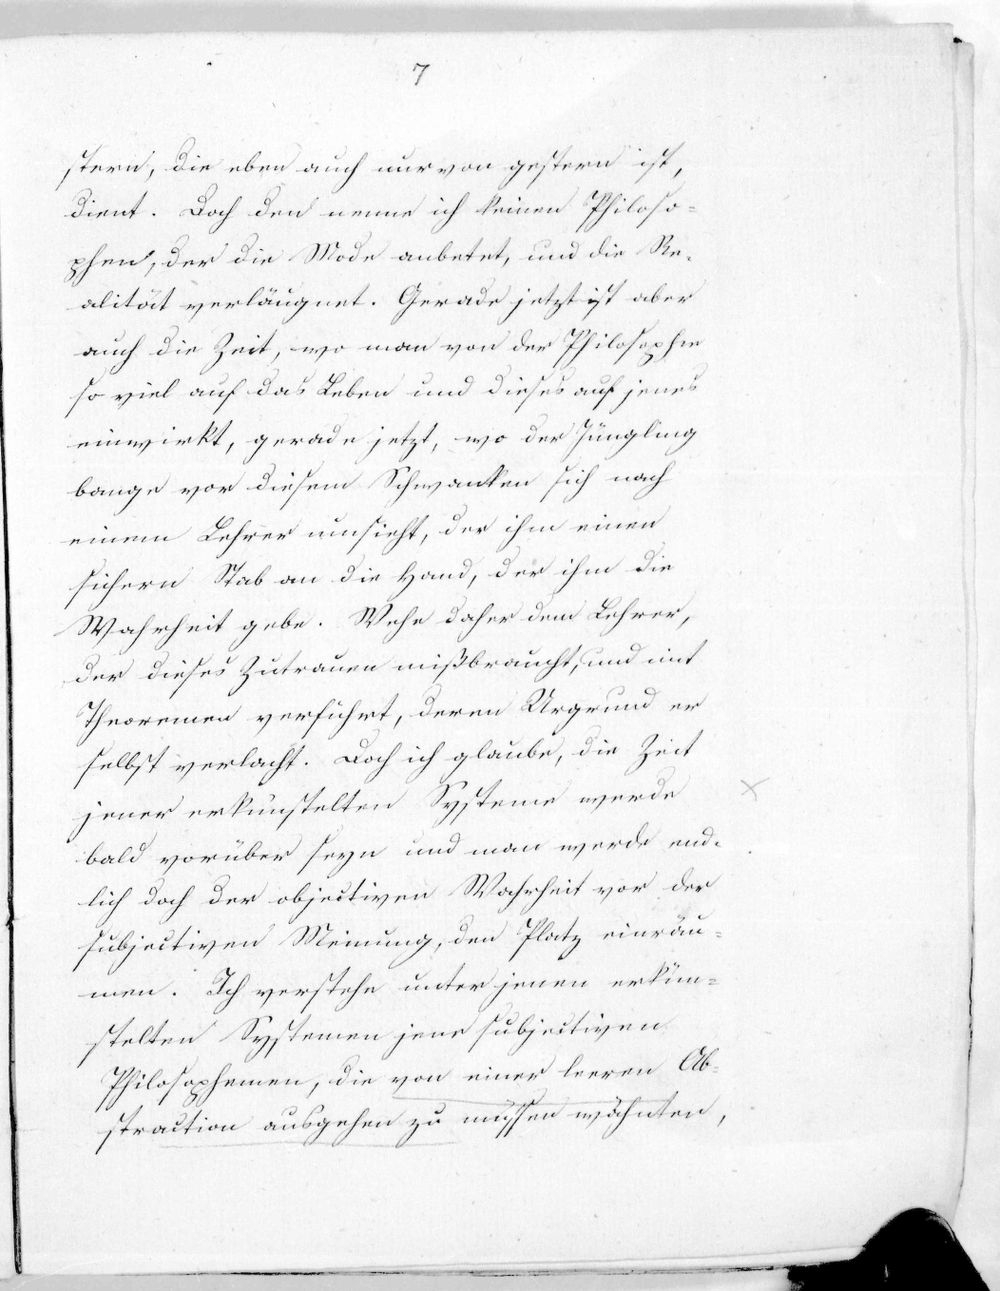 7
stern, die eben auch nur von gestern ist,
dient. Doch den nenne ich keinen Philoso=
phen, der die Mode anbetet, und die Re=
alität verläugnet. Gerade jetzt ist aber
auch die Zeit, wo man von der Philosophie
so viel auf das Leben und dieses auf jenes
einwirkt, gerade jetzt, wo der Jüngling
bange vor diesem Schwanken sich nach
einem Lehrer umsieht, der ihm einen
sichern Stab an die Hand, der ihm die
Wahrheit gebe. Wehe daher dem Lehrer,
der dieses Zutrauen mißbraucht, und mit
Theoremen verführt, deren Urgrund er
selbst verlacht. Doch ich glaube, die Zeit
jener erkünstelten Systeme werde
bald vorüber seyn und man werde end=
lich doch der objectiven Wahrheit vor der
subjectiven Meinung, den Platz einräu=
men. Ich verstehe unter jenen erkün=
stelten Systemen jene subjectiven
Philosophemen, die von einer leeren Ab=
straction ausgehen zu müssen wähnten,